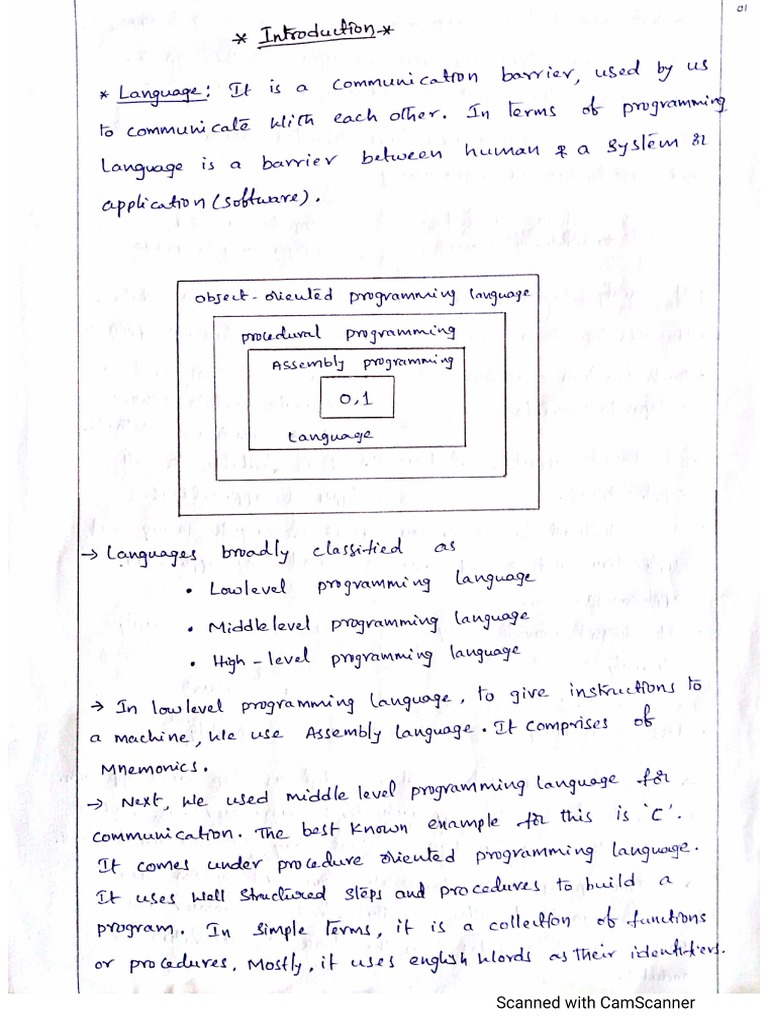 01
* Introduction *
* Language: It is a communication barrier, used by us
to communicate with each other. In terms of programming
Language is a barrier between human & a system or
application (software).
object-oriented programming language
procedural programming
Assembly programming
0,1
Language
→ Languages broadly classified as
• Lowlevel programming language
• Middlelevel programming language
• High-level programming language
→ In lowlevel programming language, to give instructions to
a machine, we use Assembly language. It comprises of
Mnemonics.
→ Next, we used middle level programming language for
communication. The best known example for this is 'C'.
It comes under procedure oriented programming language.
It uses well structured steps and procedures to build a
program. In simple terms, it is a collection of functions
or procedures. Mostly, it uses english words as their identifiers.
Scanned with CamScanner